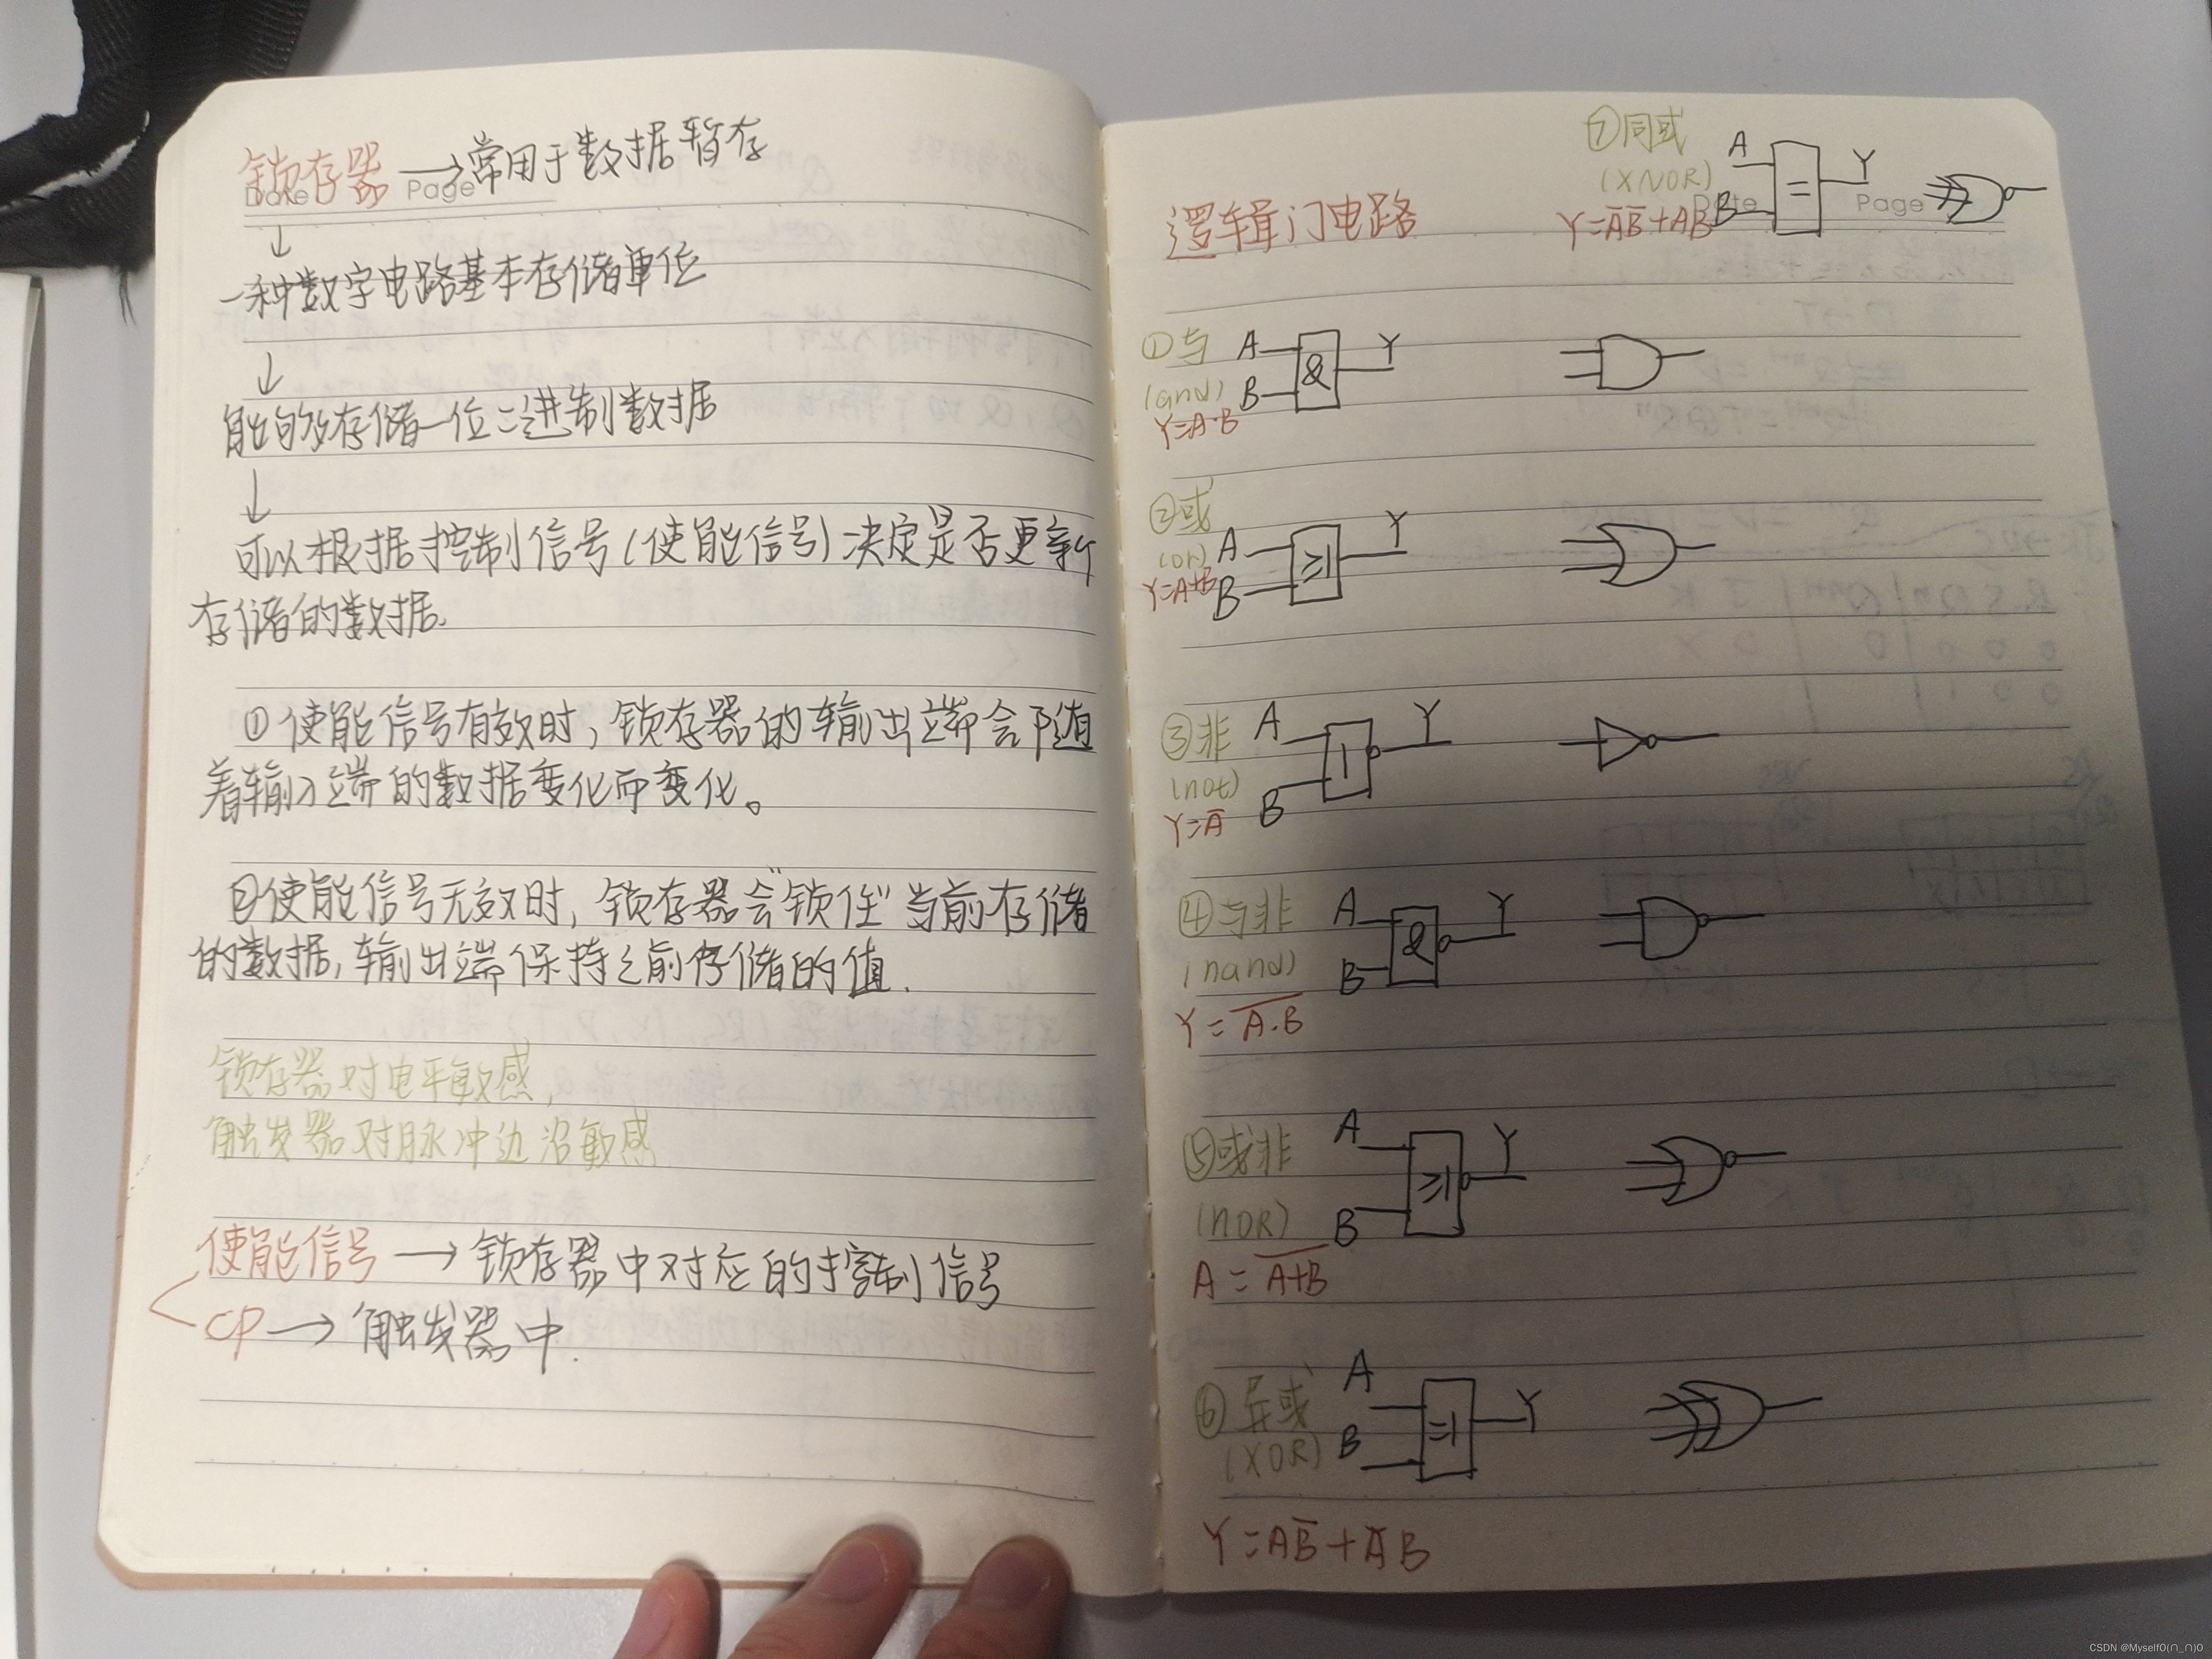 锁存器 →常用于数据暂存
Date Page
↓
一种数字电路基本存储单位
↓
能够存储一位二进制数据
↓
可以根据控制信号(使能信号)决定是否更新
存储的数据.
①使能信号有效时,锁存器的输出端会随
着输入端的数据变化而变化。
②使能信号无效时,锁存器会"锁住"当前存储
的数据,输出端保持之前存储的值.
锁存器对电平敏感,
触发器对脉冲边沿敏感
使能信号 → 锁存器中对应的控制信号
CP → 触发器中.
逻辑门电路
⑦同或
(XNOR)
A
B
=
Y
Date Page
Y=A̅B̅+AB
①与
(and)
A
B
&
Y
Y=A·B
②或
(or)
A
B
≥1
Y
Y=A+B
③非
(not)
A
B
1
Y
Y=A̅
④与非
(nand)
A
B
&
Y
Y=A̅·̅B̅
⑤或非
(nOR)
A
B
≥1
Y
A=A̅+̅B̅
⑥异或
(XOR)
A
B
=1
Y
Y=AB̅+A̅B
CSDN @Myself0(∩_∩)0